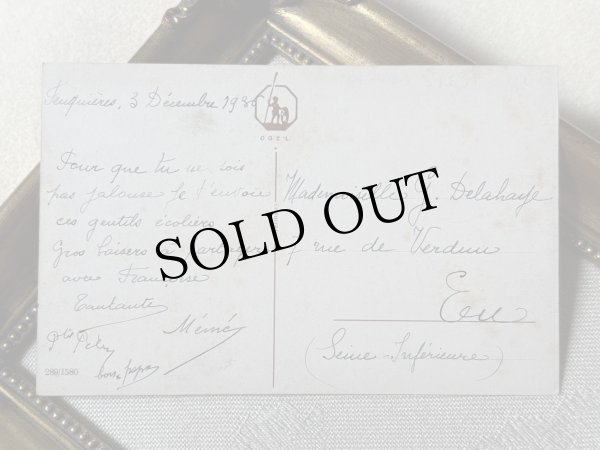 Feuquières, 3 Décembre 19
OGZL
Pour que tu ne sois
pas jalouse je t'envoie
ces gentils écoliers
Gros baisers
avec Françoise
Tantante
Mémé
Ptit Peter
bon papa
289/1580
Mademoiselle J. Delahaye
rue de Verdun
Eu
(Seine-Inférieure)
SOLD OUT